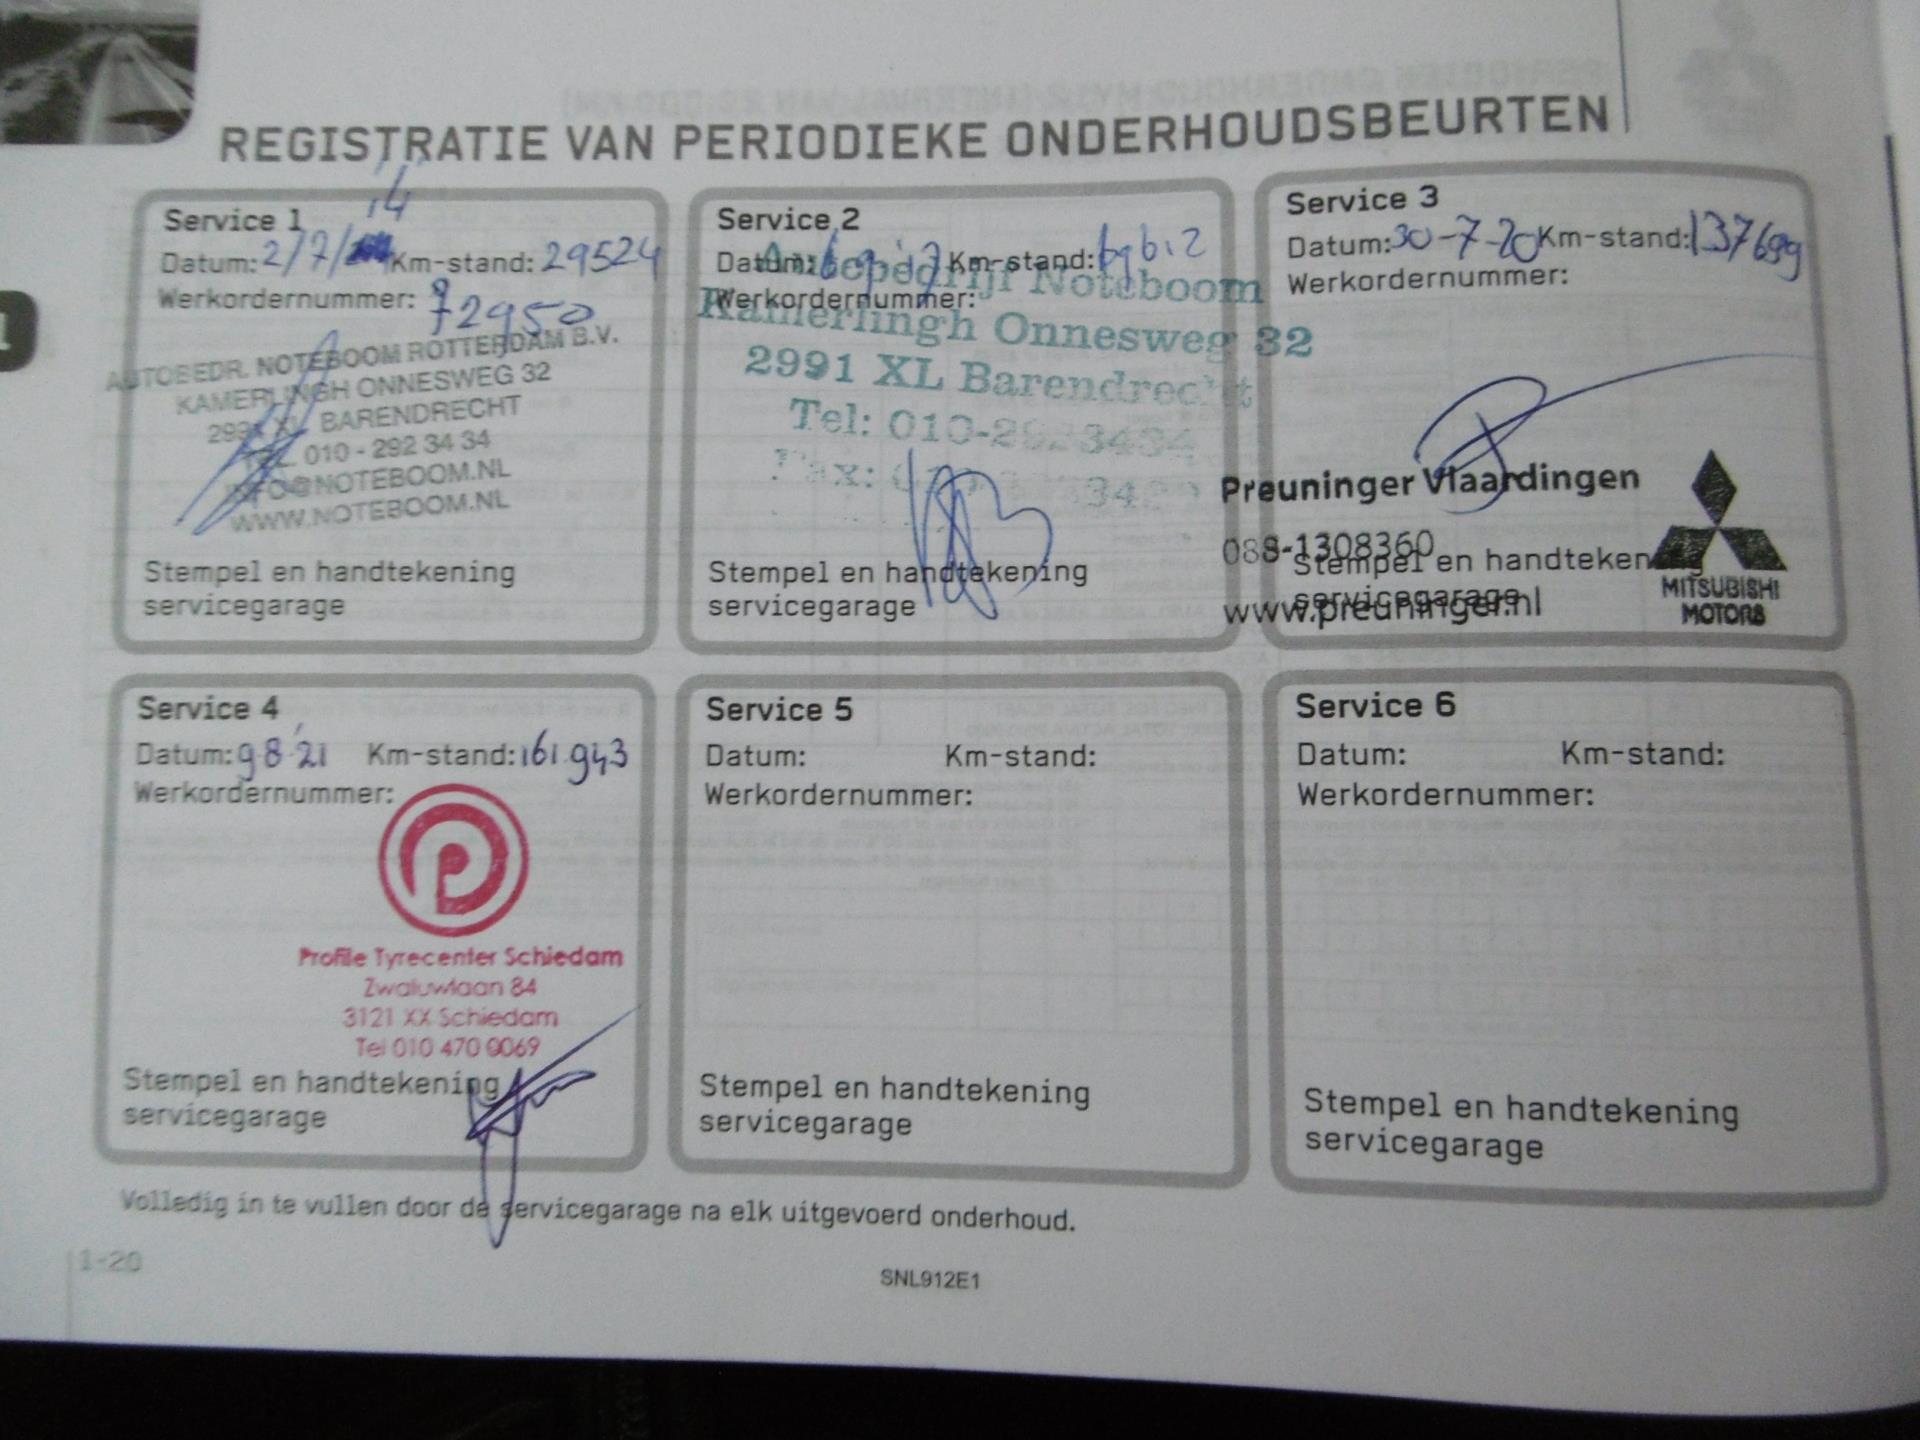 REGISTRATIE VAN PERIODIEKE ONDERHOUDSBEURTEN
Service 1
14
Datum: 2/7/ Km-stand: 29524
Werkordernummer: 72950
AUTOBEDR. NOTEBOOM ROTTERDAM B.V.
KAMERLINGH ONNESWEG 32
2991 XL BARENDRECHT
TEL 010 - 292 34 34
INFO@NOTEBOOM.NL
WWW.NOTEBOOM.NL
Stempel en handtekening
servicegarage
Service 2
Datum: Km-stand:
Werkordernummer:
Autobedrijf Noteboom
Kamerlingh Onnesweg 32
2991 XL Barendrecht
Tel: 010-2923434
Fax:
Stempel en handtekening
servicegarage
Service 3
Datum: 30-7-20 Km-stand: 137699
Werkordernummer:
Preuninger Vlaardingen
088-1308360
www.preuninger.nl
MITSUBISHI
MOTORS
Stempel en handtekening
servicegarage
Service 4
Datum: 9 8 '21 Km-stand: 161.943
Werkordernummer:
Profile Tyrecenter Schiedam
Zwaluwlaan 84
3121 XX Schiedam
Tel 010 470 0069
Stempel en handtekening
servicegarage
Service 5
Datum: Km-stand:
Werkordernummer:
Stempel en handtekening
servicegarage
Service 6
Datum: Km-stand:
Werkordernummer:
Stempel en handtekening
servicegarage
Volledig in te vullen door de servicegarage na elk uitgevoerd onderhoud.
1-20
SNL912E1